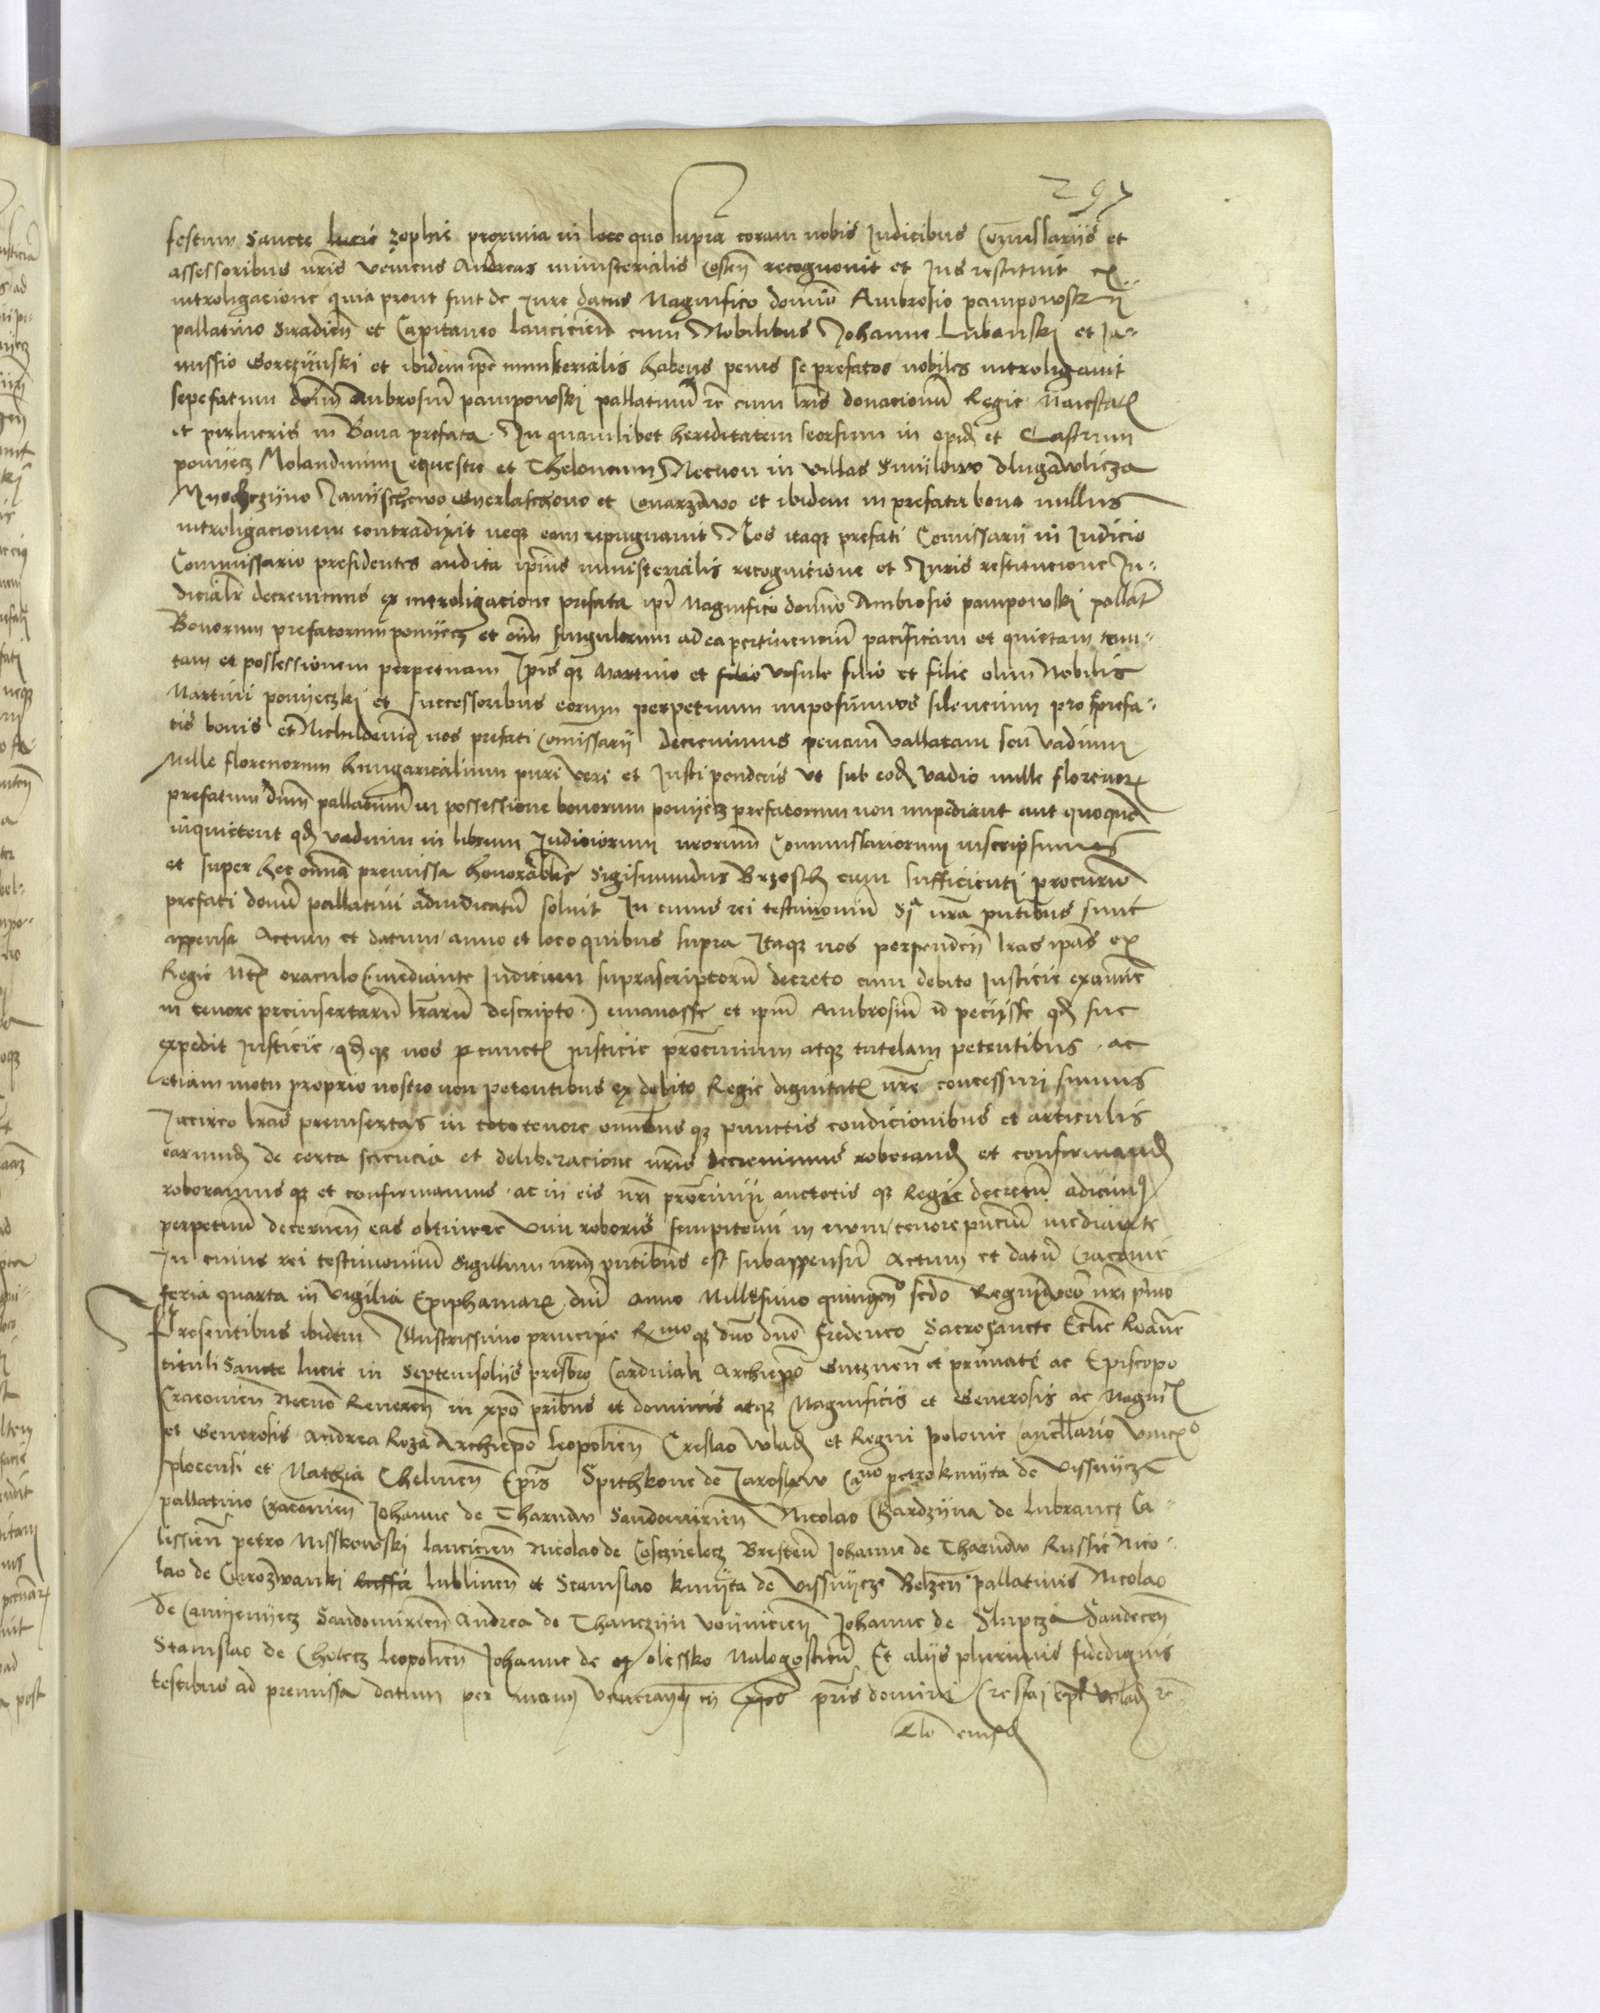 297
festum Sancte Lucie Zophie proxima in loco quo supra coram nobis Judicibus Comissariis et
assessoribus nris veniens Andreas ministerialis Costen recognovit et Jus restituit ex
introligacione quia prout fuit de Jure datus Magnifico domino Ambrosio pampowskij
pallatino Siradien et Capitaneo lancicien cum Nobilibus Johanne Lubanski et Ja-
nussio Gorczinski et ibidem ipe ministerialis habens penes se prefatos nobiles introligavit
sepefatum dom Ambrosiu pampowski pallatinu rc cum lris donacionu Regie Maiestatis
et pirlucris in Bona prefata. In quamlibet hereditatem seorsum in opid et Castrum
ponijecz Molendinum equestre et Theloneum Necnon in villas Smijlowo dlugawlicza
Janijschewo Gyerlatschowo et Conarzewo et ibidem in prefata bona nullus
introligacionem contradixit neqz eam repugnavit Nos itaqz prefati Comissarii in Judicio
Commissario presidentes audita ipius ministerialis recognicione et Juris restitucione Ju-
dicialr decrevimus ex introligacione prefata ipi Magnifico domino Ambrosio pampowski pallat
Bonorum prefatorum ponijecz et oim singulorum ad ea pertinenciu pacificam et quietam tenu-
tam et possessionem perpetuam Ipis qz Martino et filio Ursule filio et filie olim Nobilis
Martini ponijeczki et successoribus eorum perpetuum imposuimus silencium pro prefa-
tis bonis et Nichilominus nos prefati Comissarij decrevimus penam vallatam seu vadium
Mille florenorum hungaricalium puri veri et Justi ponderis ut sub eod vadio mille florenor
prefatum dnm pallatinu in possessione bonorum ponijecz prefatorum non impediant aut quoque
inquietent qd vadium in librum Judiciorum nrorum Commissariorum inscripsimus
et super hec omnia premissa honorabilis Sigismundus Brzoseh cum sufficienti procurio
prefati domi pallatini adiudicatu solvit In cuius rei testimoniu Sia nra pntibus sunt
appensa Actum et datum anno et loco quibus supra Itaqz nos perpenden lras ipas ex
Regie Mtis oraculo (mediante Judicium suprascriptoru decreto cum debito Justicie examine
in tenore preinsertaru lraru descripto) emanasse et ipm Ambrosiu id peciisse qd sue
expedit Justicie qd qz nos p cunctis Justicie procinium atqz tutelam petentibus ac
etiam motu proprio nostro non petentibus ex debito Regie dignitatis nre concessuri sumus
Iccirco lras preinsertas in toto tenore omnibus qz punctis condicionibus et articulis
earumd de certa sciencia et deliberacione nris decrevimus roborand et confirmand
roboramus qz et confirmamus ac in eis nri procinij auctotis qz Regie decretu adicim
perpetuu decernen eas obtinere vim roboris sempiterni in evum tenore pnciu mediante
In cuius rei testimoniu Sigillum nrm pntibus est subappensu Actum et datu Cracovie
feria quarta in vigilia Epiphaniar dni anno Millesimo quingeno scdo Regni vero nri pmo
Presentibus ibidem Illustrissimo principe Rmo qz dno dno frederico Sacrosancte Eclie Roane
tituli Sancte lucie in Septemsoliis presbro Cardinali Archiepo Gneznen et primate ac Episcopo
Cracovien Necno Reveren in xpo pribus et dominis atqz Magnificis et Generosis ac Magnis
et Generosis Andrea Roza Archiepo leopolien Creslao wlad et Regni polonie Cancllario Vincio
plocensi et Mathia Chelmen Epis Spithkone de Jaroslaw Cno petro kmijta de vissnijcze
pallatino Cracovien Johanne de Tharnow Sandomirien Nicolao Gardzijna de lubrancz Ca-
lissien petro Misskowski lancicien Nicolao de Costzielecz Bresten Johanne de Tharnow Russie Nico-
lao de Curozwanki Russia lublinen et Stanislao kmijta de vissnijcze Belzen pallatinis Nicolao
de Camijenijecz Sandomirien Andrea de Thanczijn voijnicien Johanne de Slupcza Sandecen
Stanislao de Chotecz leopolien Johanne de olessko Malogosticn Et aliis plurimis fidedignis
testibus ad premissa datum per manus venerand in xpo pris domini Creslai epi wlad rc